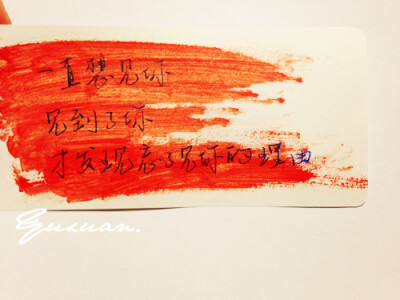 一直想见你
见到了你
才发现忘了见你的理由
Gusuan.